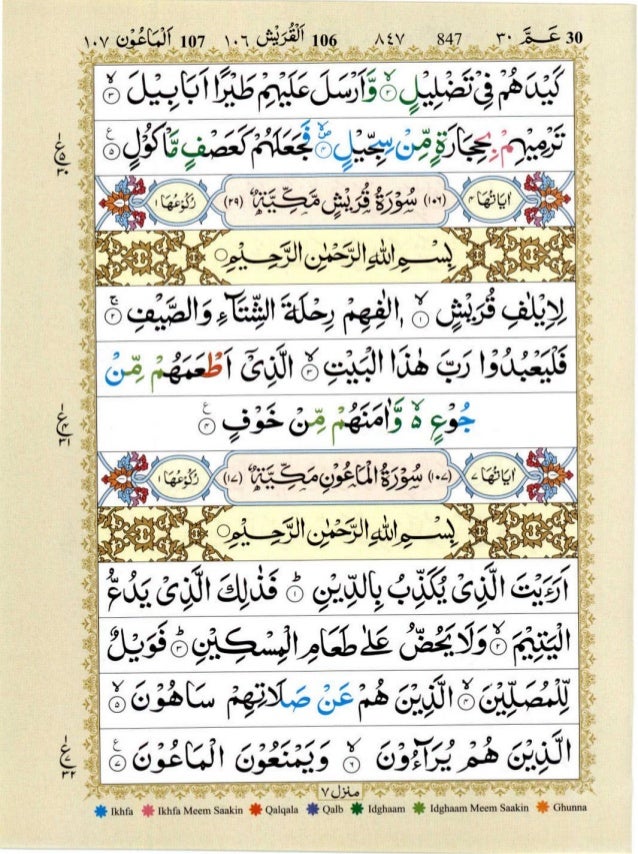 ١٠٧ اَلْمَاعُوْن 107 ١٠٦ اَلْقُرَيْش 106 ٨٤٧ 847 ٣٠ عَمَّ 30
كَيْدَهُمْ فِيْ تَضْلِيْلٍ ۙ٢ وَّاَرْسَلَ عَلَيْهِمْ طَيْرًا اَبَابِيْلَ ۙ٣
تَرْمِيْهِمْ بِحِجَارَةٍ مِّنْ سِجِّيْلٍ ۪ۙ٤ فَجَعَلَهُمْ كَعَصْفٍ مَّاْكُوْلٍ ٥
ع ٥ ٣٠
اٰيَاتُهَا ٤ (١٠٦) سُوْرَةُ قُرَيْشٍ مَكِّيَّةٌ (٢٩) رُكُوْعُهَا ١
بِسْمِ اللّٰهِ الرَّحْمٰنِ الرَّحِيْمِ
لِاِيْلٰفِ قُرَيْشٍ ۙ١ اٖلٰفِهِمْ رِحْلَةَ الشِّتَآءِ وَالصَّيْفِ ۚ٢
فَلْيَعْبُدُوْا رَبَّ هٰذَا الْبَيْتِ ۙ٣ الَّذِيْٓ اَطْعَمَهُمْ مِّنْ
جُوْعٍ ۙ٥ وَّاٰمَنَهُمْ مِّنْ خَوْفٍ ٤
ع ٤ ٣١
اٰيَاتُهَا ٧ (١٠٧) سُوْرَةُ الْمَاعُوْنِ مَكِّيَّةٌ (١٧) رُكُوْعُهَا ١
بِسْمِ اللّٰهِ الرَّحْمٰنِ الرَّحِيْمِ
اَرَءَيْتَ الَّذِيْ يُكَذِّبُ بِالدِّيْنِ ؕ١ فَذٰلِكَ الَّذِيْ يَدُعُّ
الْيَتِيْمَ ۙ٢ وَلَا يَحُضُّ عَلٰى طَعَامِ الْمِسْكِيْنِ ؕ٣ فَوَيْلٌ
لِّلْمُصَلِّيْنَ ۙ٤ الَّذِيْنَ هُمْ عَنْ صَلَاتِهِمْ سَاهُوْنَ ۙ٥
الَّذِيْنَ هُمْ يُرَآءُوْنَ ۙ٦ وَيَمْنَعُوْنَ الْمَاعُوْنَ ٧
ع ٧ ٣٢
منزل ٧
Ikhfa Ikhfa Meem Saakin Qalqala Qalb Idghaam Idghaam Meem Saakin Ghunna